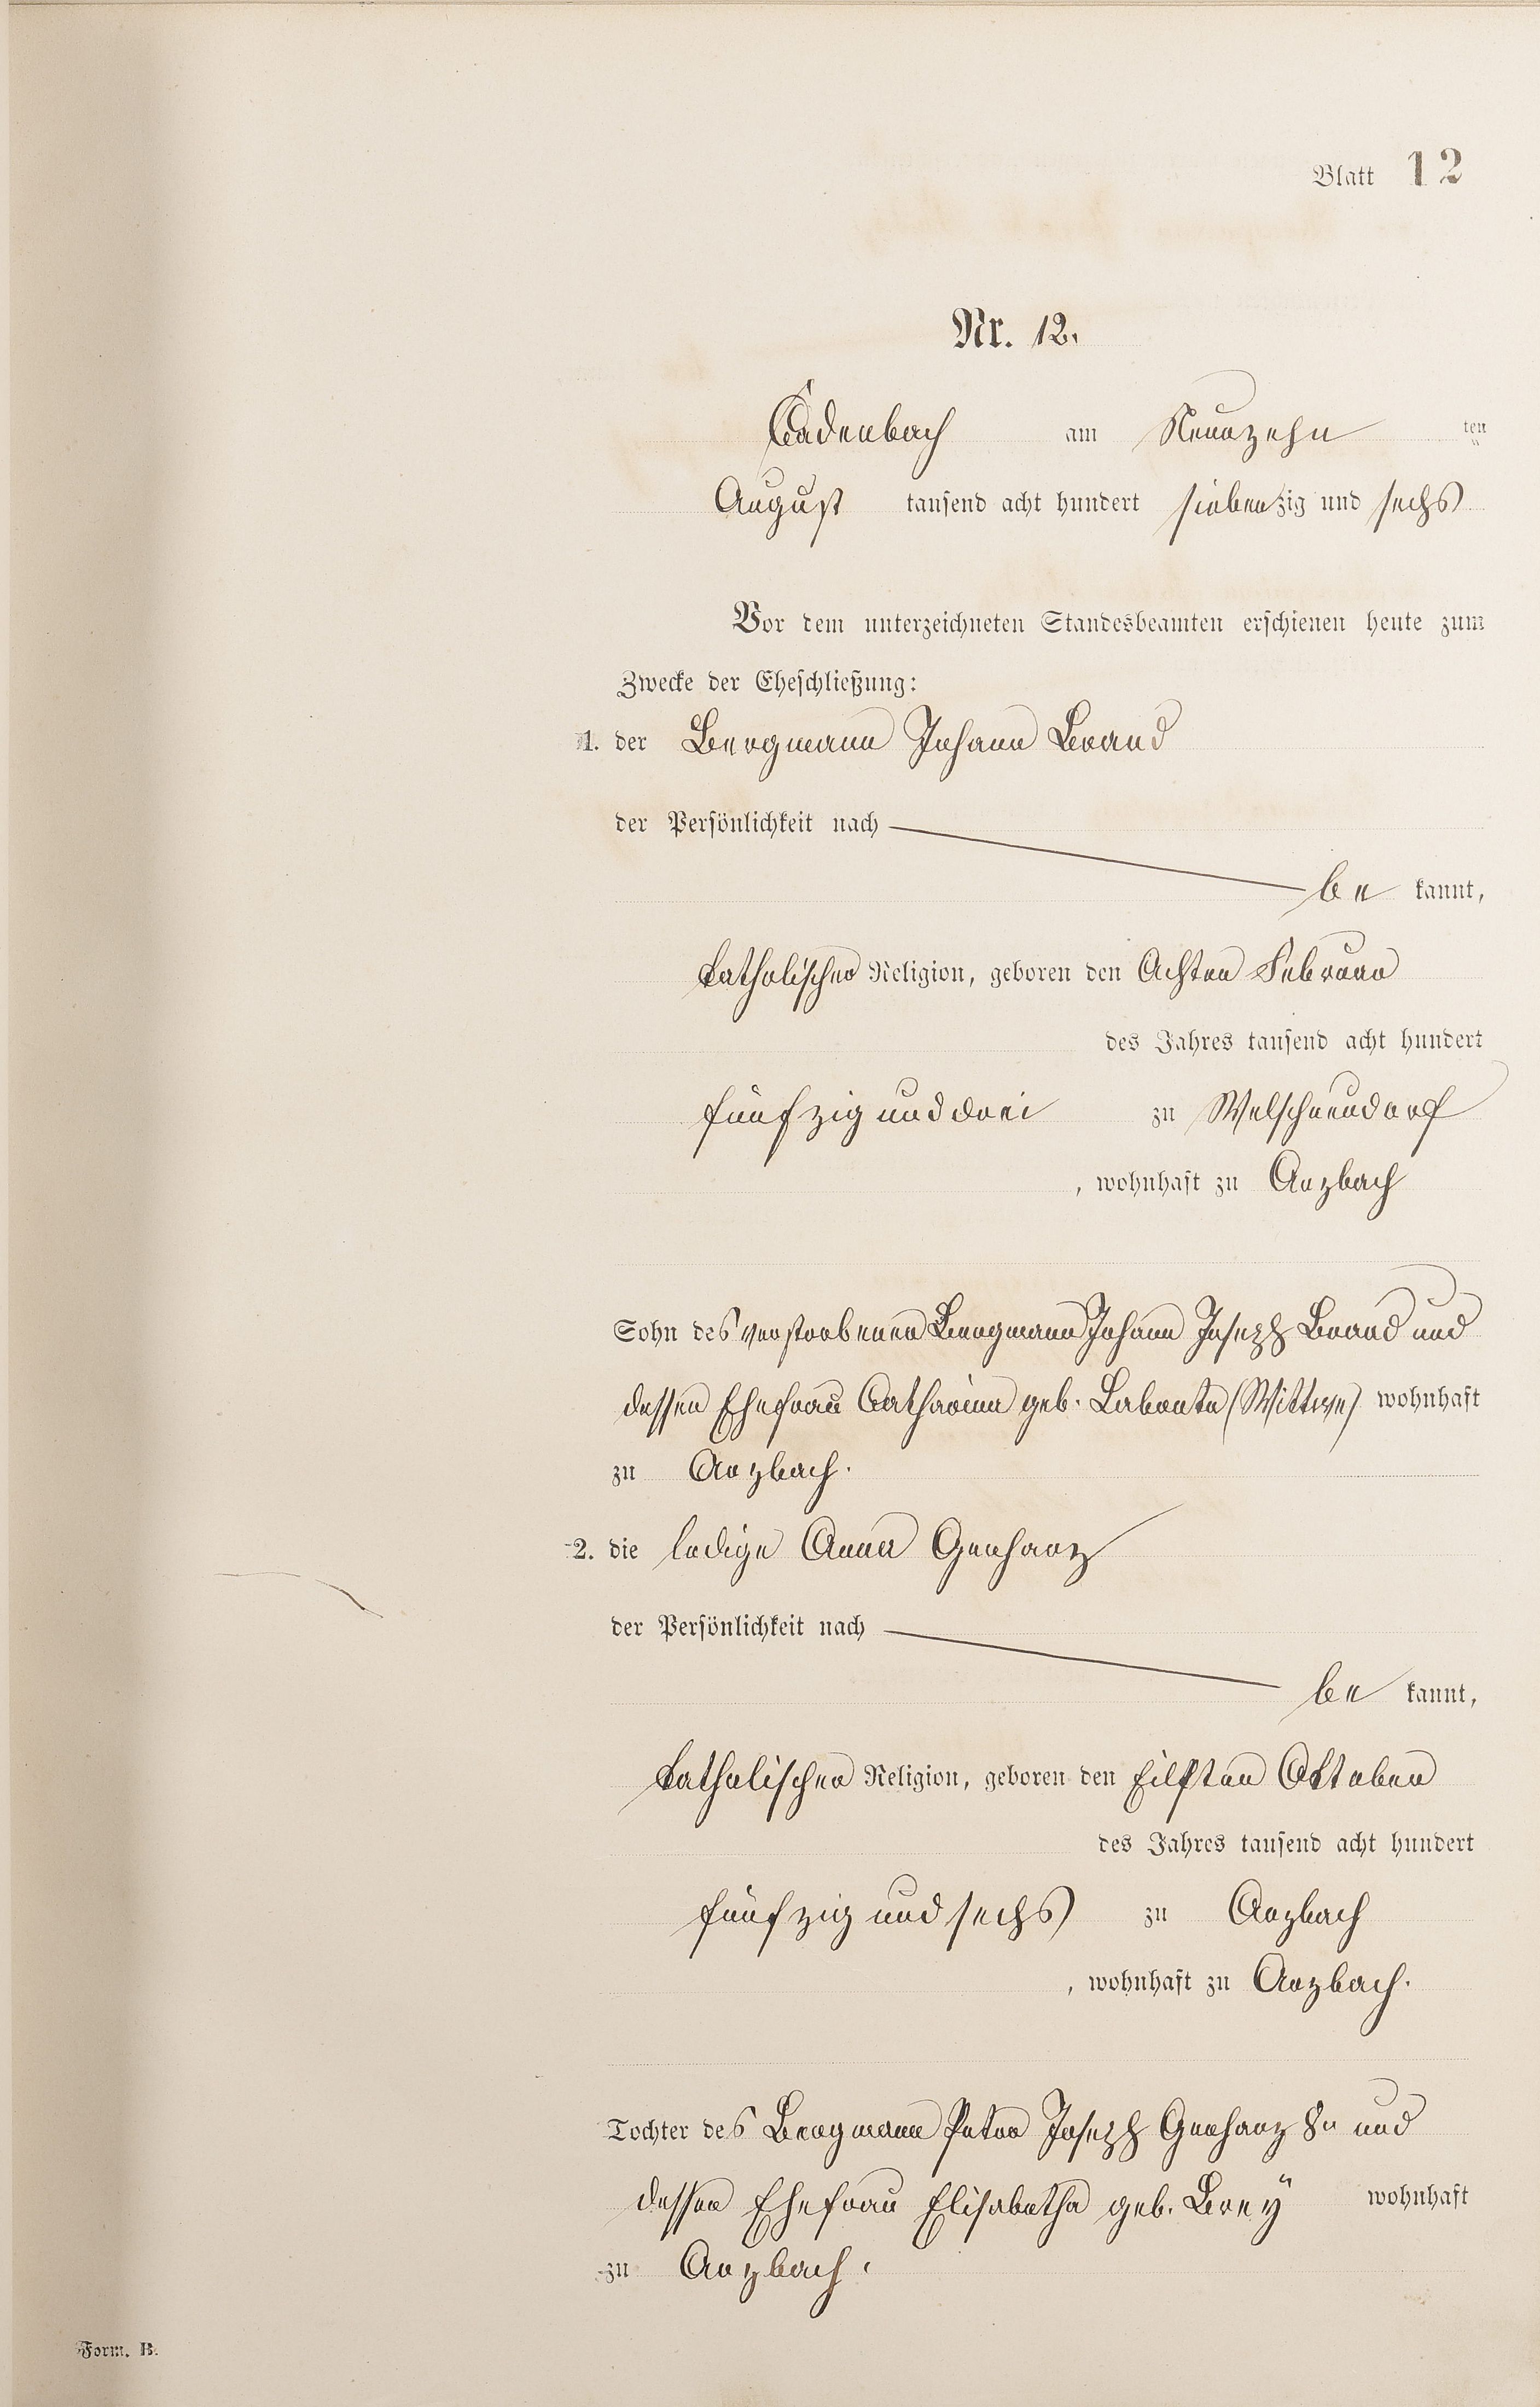 Blatt 12
Nr. 12.
Cadenbach am Neunzehn ten
August tausend acht hundert siebenzig und sechs
Vor dem unterzeichneten Standesbeamten erschienen heute zum
Zwecke der Eheschließung:
1. der Bergmann Johann Brand
der Persönlichkeit nach
be kannt,
katholischer Religion, geboren den Achten Februar
des Jahres tausend acht hundert
fünfzig und drei zu Welschneudorf
, wohnhaft zu Arzbach
Sohn des verstorbenen Bergmann Johann Joseph Brand und
dessen Ehefrau Catharina geb. Labonte (Wittwe) wohnhaft
zu Arzbach.
2. die ledige Anna Gerharz
der Persönlichkeit nach
be kannt,
katholischer Religion, geboren den Eilften Oktober
des Jahres tausend acht hundert
fünfzig und sechs zu Arzbach
, wohnhaft zu Arzbach.
Tochter des Bergmann Peter Joseph Gerharz und
dessen Ehefrau Elisabetha geb. Brey wohnhaft
zu Arzbach.
Form. B.